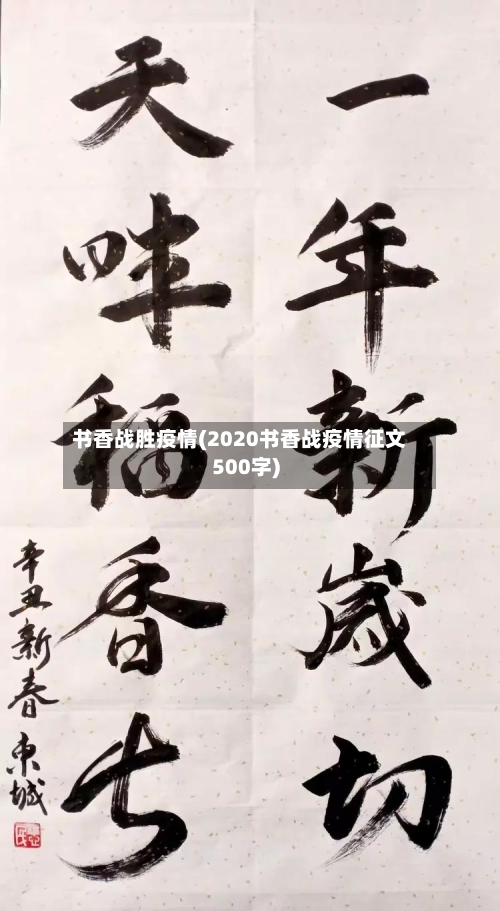 一年新歲切
天畔稻香長
辛丑新春東城
书香战胜疫情(2020书香战疫情征文
500字)